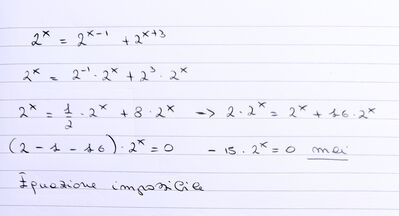 2^x = 2^{x-1} + 2^{x+3}
2^x = 2^{-1} · 2^x + 2^3 · 2^x
2^x = 1/2 · 2^x + 8 · 2^x → 2 · 2^x = 2^x + 16 · 2^x
(2 - 1 - 16) · 2^x = 0 - 15 · 2^x = 0 mai
Equazione impossibile